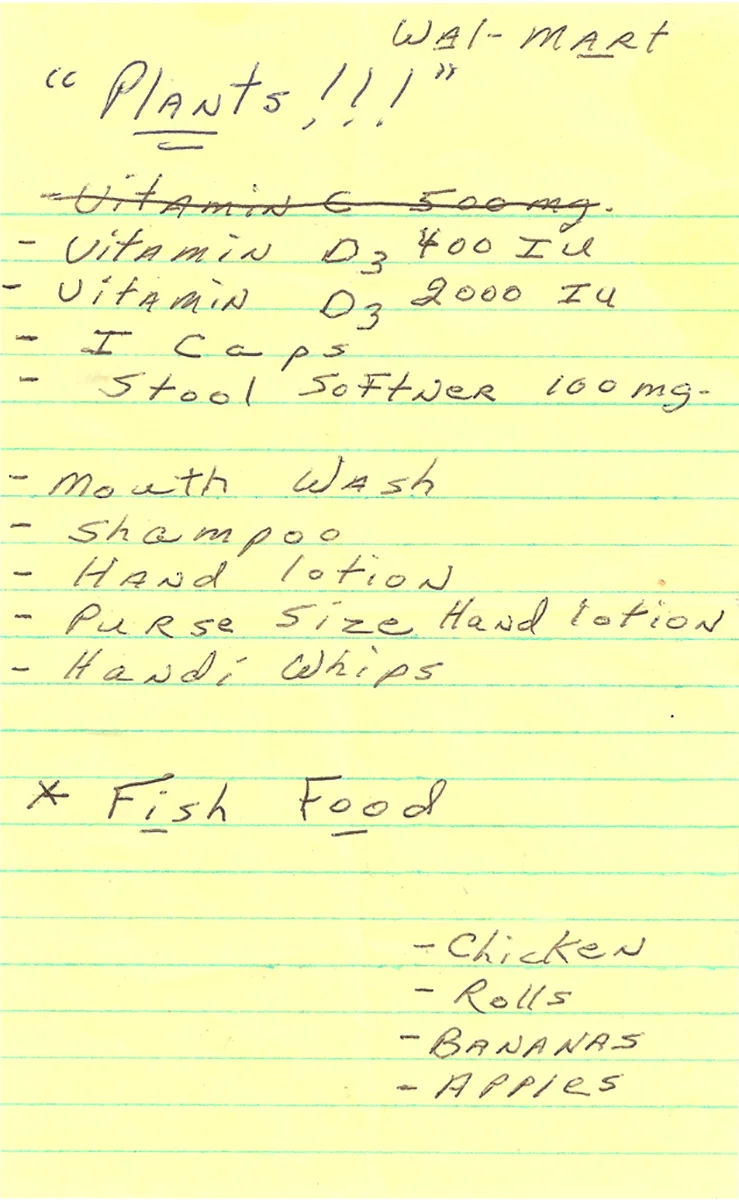 Wal-Mart
"Plants!!!"
- Vitamin C 500 mg.
- Vitamin D3 400 IU
- Vitamin D3 2000 IU
- I Caps
- Stool Softner 100 mg.
- Mouth Wash
- Shampoo
- Hand lotion
- Purse Size Hand lotion
- Handi Whips
* Fish Food
- Chicken
- Rolls
- Bananas
- Apples